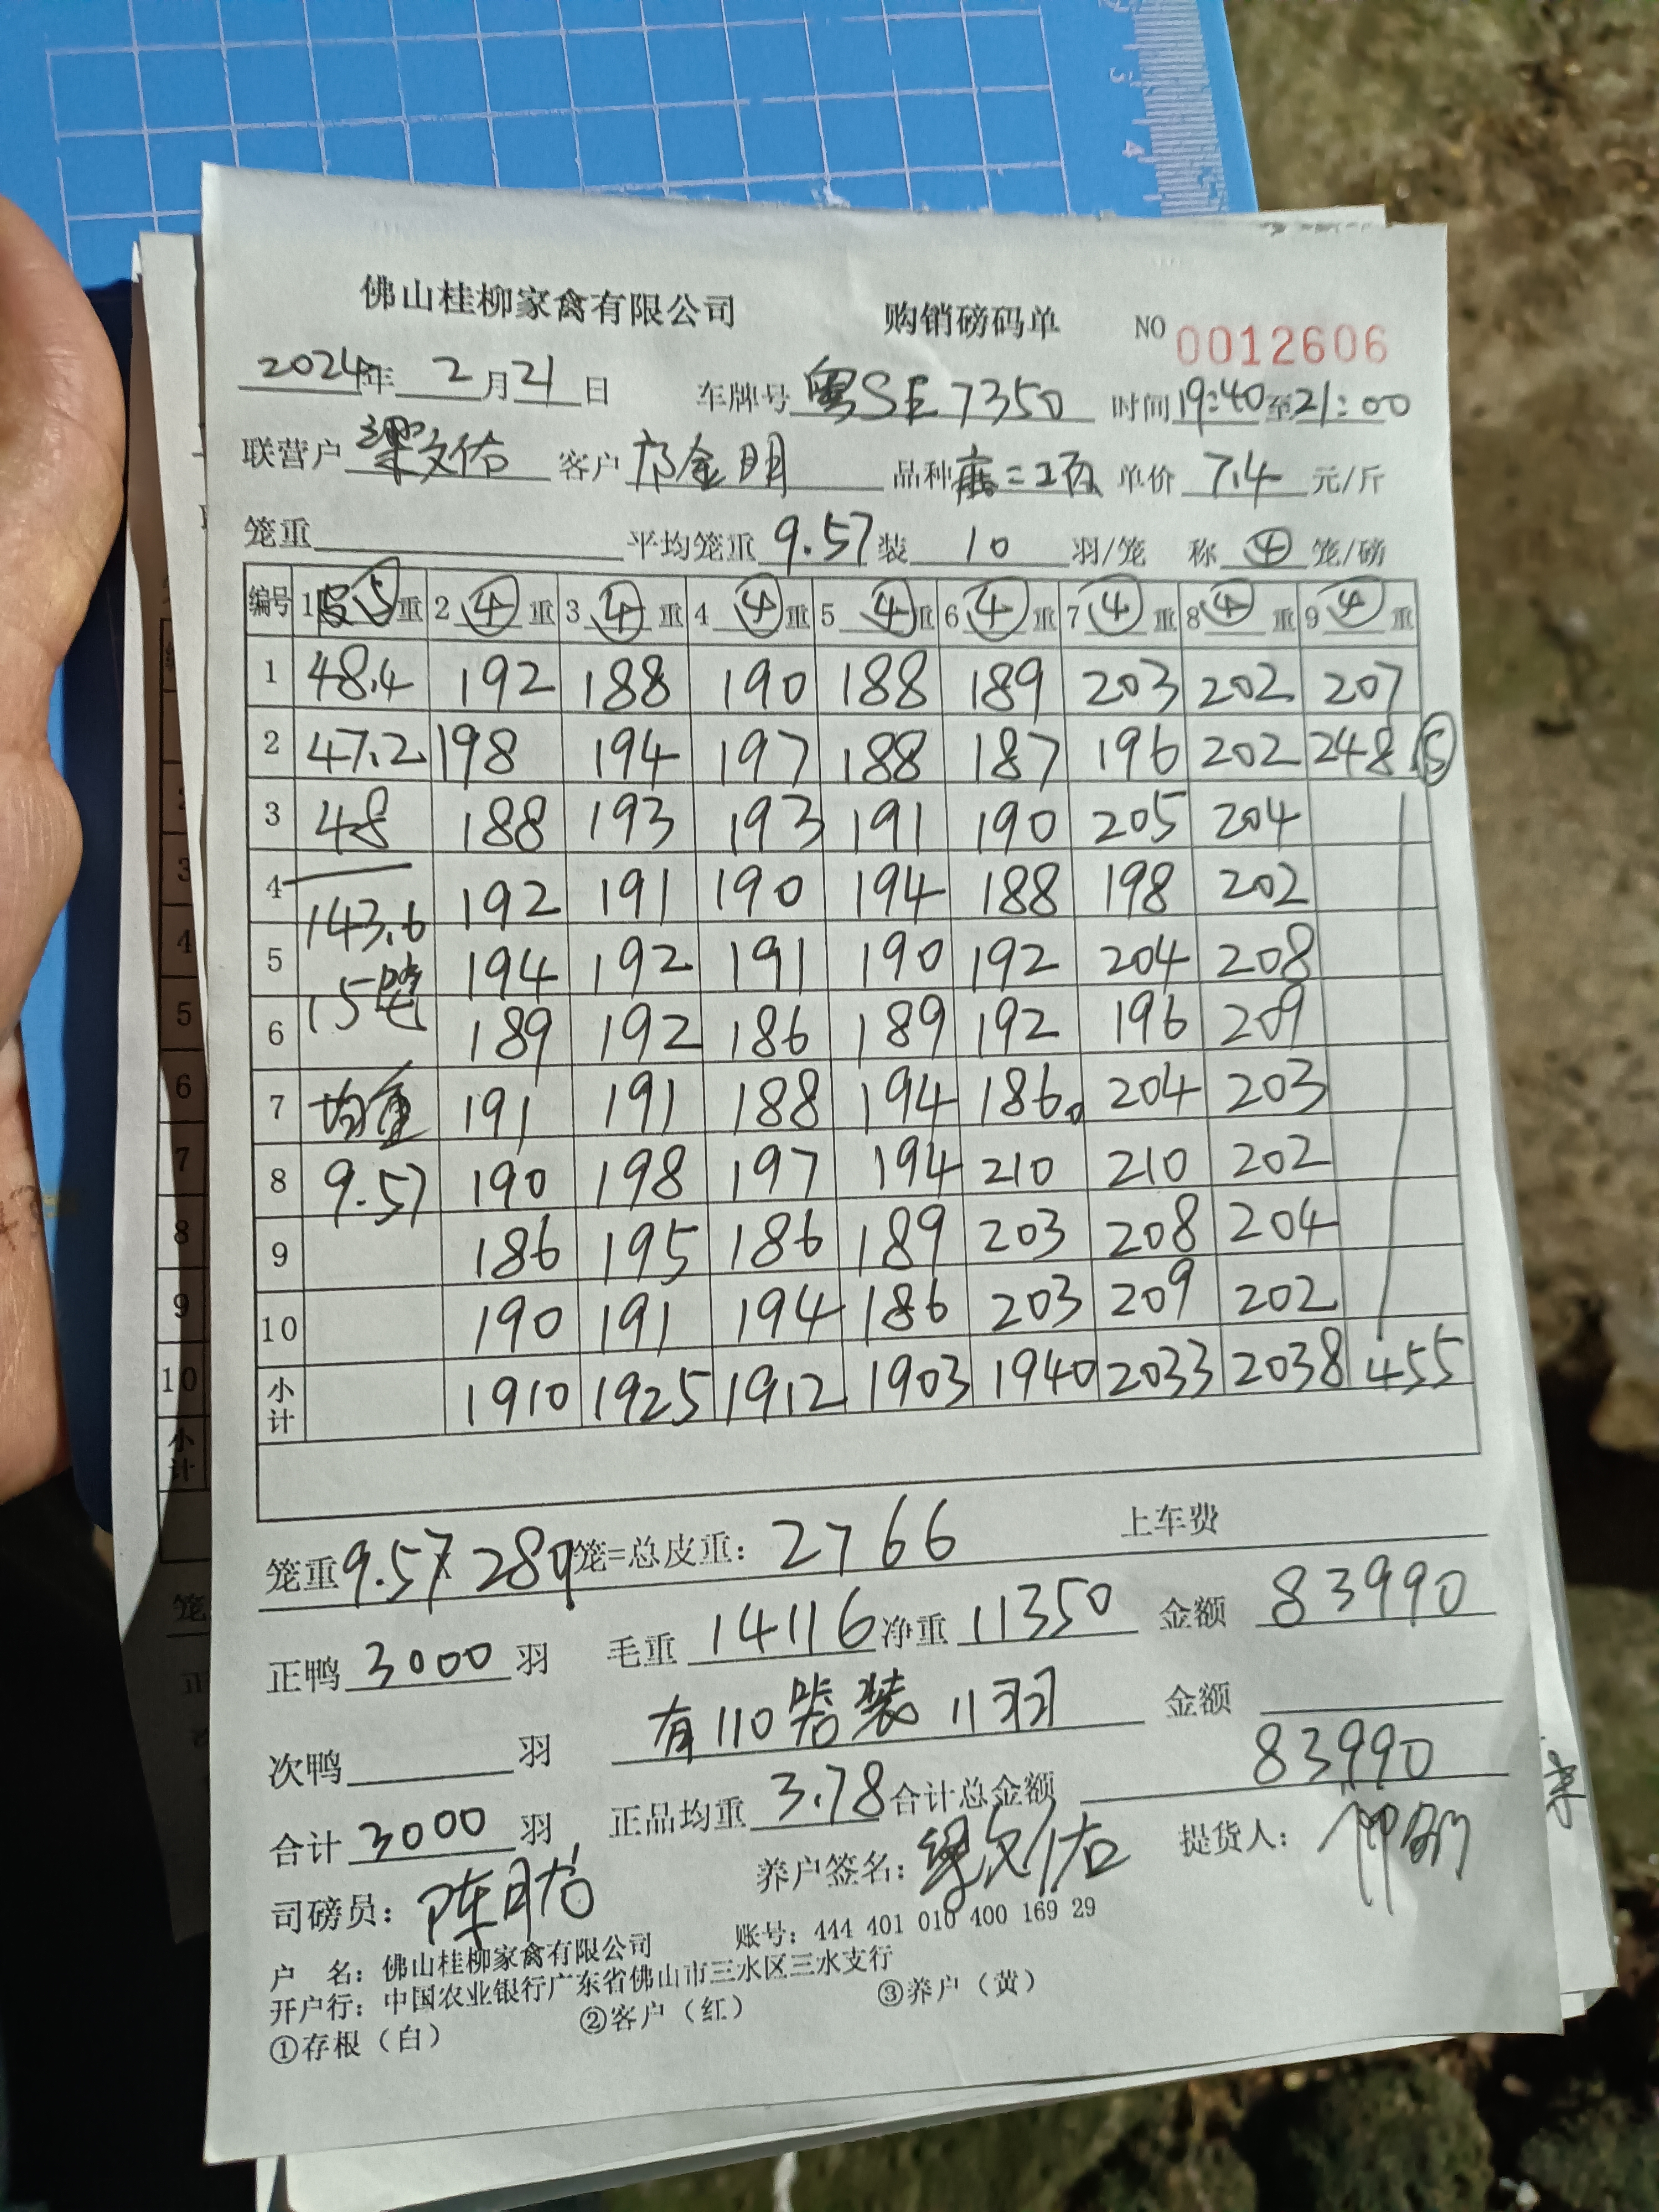 佛山桂柳家禽有限公司 购销磅码单 NO 0012606
2024年 2月21日 车牌号 粤SE7350 时间19:40至21:00
联营户 梁文佑 客户 邝金明 品种 单价 7.4 元/斤
笼重 平均笼重 9.57 装 10 羽/笼 称 ④ 笼/磅
编号 1皮⑤重 2④重 3④重 4④重 5④重 6④重 7④重 8④重 9④重
1 48.4 192 188 190 188 189 203 202 207
2 47.2 198 194 197 188 187 196 202 248 ⑤
3 48 188 193 193 191 190 205 204
4 143.6 192 191 190 194 188 198 202
5 15笼 194 192 191 190 192 204 208
6 189 192 186 189 192 196 209
7 均重 191 191 188 194 186. 204 203
8 9.57 190 198 197 194 210 210 202
9 186 195 186 189 203 208 204
10 190 191 194 186 203 209 202
小计 1910 1925 1912 1903 1940 2033 2038 455
笼重9.57x 289笼=总皮重: 2766 上车费
正鸭 3000 羽 毛重 14116 净重 11350 金额 83990
次鸭 羽 有110 装 11羽 金额
合计 3000 羽 正品均重 3.78 合计总金额 83990
司磅员: 养户签名: 梁文佑 提货人:
户 名: 佛山桂柳家禽有限公司 账号: 444 401 010 400 169 29
开户行: 中国农业银行广东省佛山市三水区三水支行
①存根（白） ②客户（红） ③养户（黄）